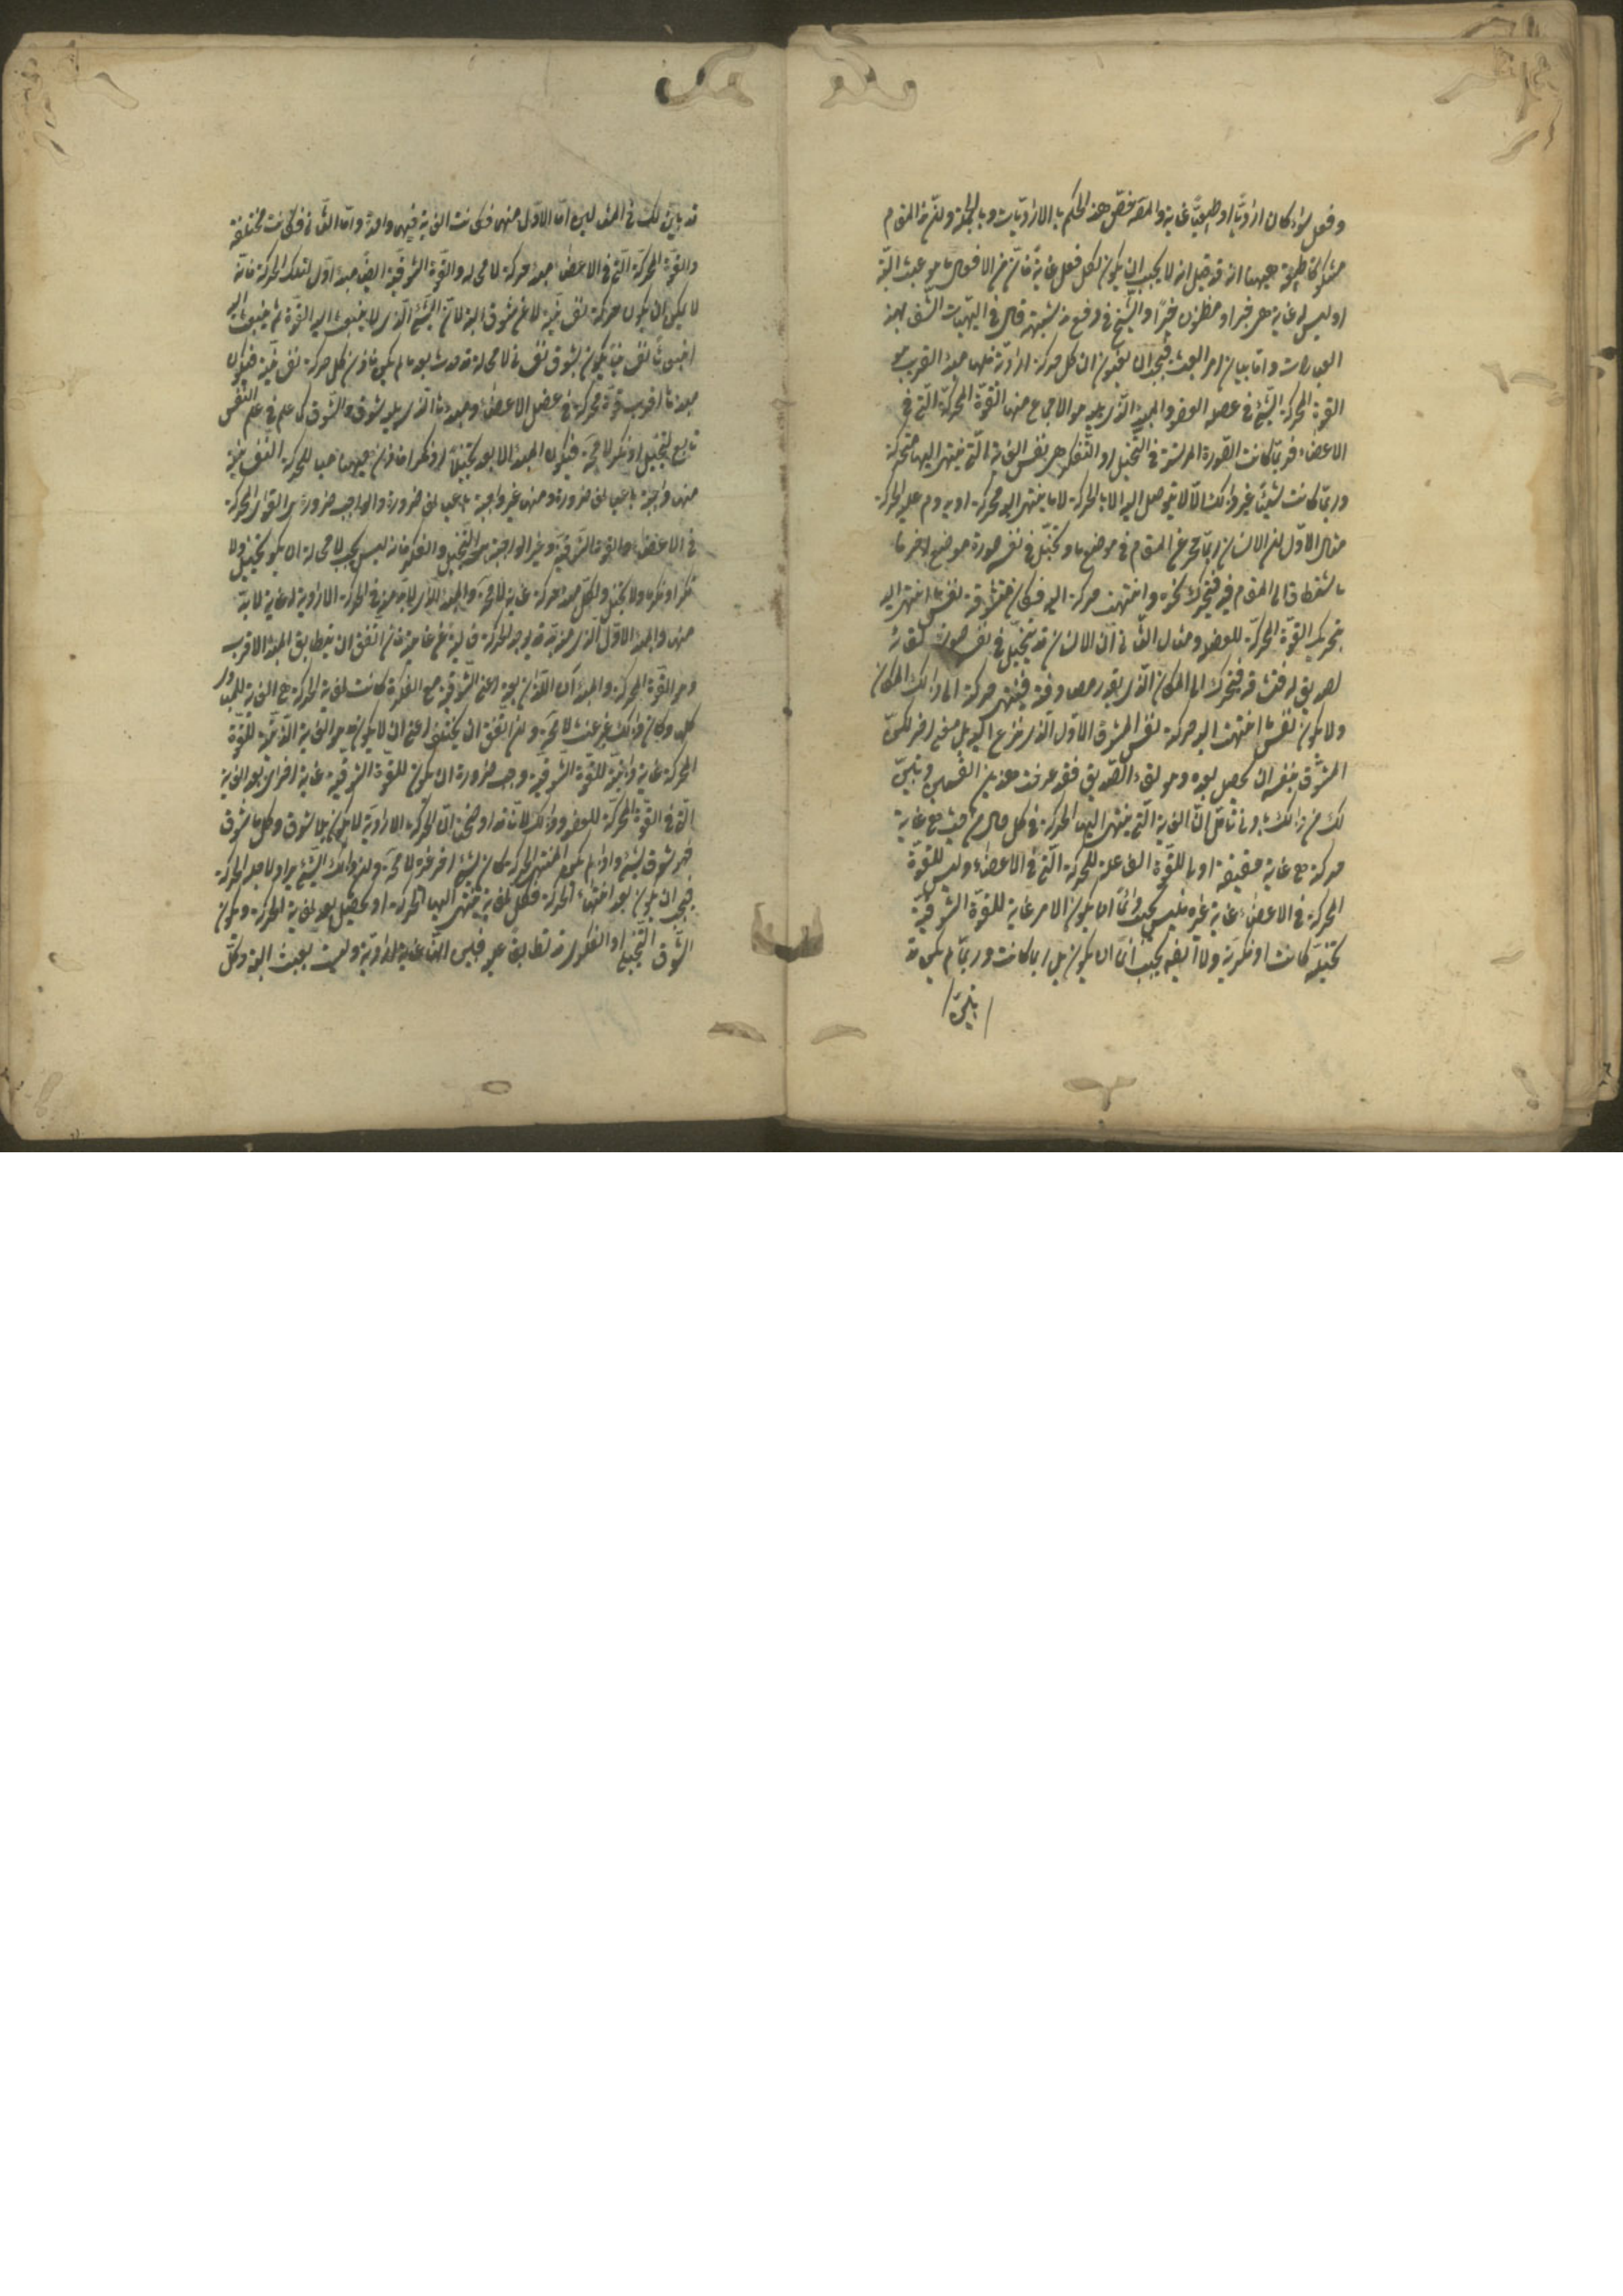 وفعل سواء كان اراديا او طبيعيا غاية والمصه خص هذا الحكم بالاراديات وبالجملة ولنر في المقام
شكوك عليها انه قد قيل انه لا يجب ان يكون لكل فعل غاية فان من الافعال ما هو عبث البتة
او ليس له غاية هي خير او مظنون خيرا والشيخ في دفع هذه الشبهة قال في الهيات الشفا بهذه
العبارات واما بيان امر العبث فيجب ان تعلموا ان كل حركة ارادية فلها مبدأ قريب هو
القوة المحركة التي في عضلة العضو والمبدء الذي يليه هو الاجماع من القوة المحركة التي في
الاعضاء فربما كانت الصورة المرتسمة في التخيل او التفكر هي نفس الغاية التي ينتهي اليها الحركة
وربما كانت شيئا غير ذلك الا انه لا يتوصل اليه الا بالحركة لا ما ينتهي اليه الحركة او يدوم عليه الحركة
مثال الاول ان الانسان ربما ضجر عن المقام في موضع ما وتخيل في نفسه صورة موضع اخر ما
فاشتاق الى المقام فيه فتحرك نحوه وانتهت حركته اليه فكان متشوقه نفس ما انتهى اليه
تحريك القوة المحركة للعضو ومثال الثاني ان الانسان قد يتخيل في نفسه صورة لقائه
لصديق له فيشتاقه فيتحرك الى المكان الذي يقدر مصادفته فينتهي حركته الى ذلك المكان
ولا يكون نفس ما انتهت اليه حركته نفس المتشوق الاول الذي نزع اليه بل معنى اخر لكن
المتشوق يتبعه ان يحصل بعده وهو لقاء الصديق فقد عرفت هذين القسمين وتبين
لك من ذلك بادنى تامل ان الغاية التي ينتهي اليها الحركة في كل حال من حيث هي غاية
حركة هي غاية حقيقية اولى للقوة الفاعلة للحركة التي في الاعضاء وليس للقوة
المحركة في الاعضاء غاية غيرها ليس يجب دائما ان يكون الامر غاية للقوة الشوقية
تخيلية كانت او فكرية ولا ايضه يجب دائما ان يكون بل ربما كانت وربما لم يكن قد
تبين
قد تبين لك في المثالين اما الاول منهما فكانت الغاية فيهما واحدة واما الثاني فكانت مختلفة
والقوة المحركة التي في الاعضاء مبدء حركة لا محالة والقوة الشوقية ايضا مبدء اول لتلك الحركة فانه
لا يمكن ان يكون حركة نفسانية لا عن شوق البتة لان الشيء الذي لا ينبعث اليه القوة ثم ينبعث اليه
انبعاثا نفسانيا يكون بشوق نفساني لا محالة قد حدث بعد ما لم يكن فاذن كل حركة نفسانية فيكون
مبدءها اقرب قوة محركة في عضل الاعضاء ومبدءها الذي يليه شوق والشوق كما علم في علم النفس
تابع لتخيل او فكر لا محة فيكون المبدء الابعد تخيلا او فكرا فاذن ههنا مبادي للحركة النفسانية
منها واجبة باعيانها ضرورة ومنها غير واجبة باعيانها ضرورة والواجب ضرورة هي القوى المحركة
في الاعضاء والقوة الشوقية وغير الواجبة هي التخيل والفكر فانه ليس يجب لا محالة ان يكون تخيل ولا
فكر او فكر ولا تخيل ولكل مبدء حركة غاية لا محة والمبدء الذي لا بد منه في الحركة الارادية له غاية لا بد
منها والمبدء الاول الذي منه بد قد يوجد الحركة خالية عن غايته فان اتفق ان يتطابق المبدء الاقرب
وهو القوة المحركة والمبدءان اللذان بعده اعني الشوقية مع الفكرة كانت نهاية الحركة هي الغاية للمبادي
كلها وكان ذلك غير عبث لا محة وان اتفق ان يختلف اعني ان لا يكون ما هو الغاية الذاتية للقوة
المحركة غاية ذاتية للقوة الشوقية وجب ضرورة ان يكون للقوة الشوقية غاية اخرى بعد الغاية
التي في القوة المحركة للعضو وذلك لانا قد اوضحنا ان الحركة الارادية لا يكون بلا شوق وكل ما شوق
فهو شوق لشيء واذا لم يكن لمنتهى الحركة كان لشيء اخر غيره لا محة واذا كان ذلك الشيء يراد لاجله الحركة
فيجب ان يكون بعد انتهاء الحركة فكل نهاية ينتهي اليها الحركة او تحصل بعد نهاية الحركة ويكون
الشوق التخيلي او الفكري قد تطابقا عليه فبين انها غاية ارادية وليست بعبث البتة وكل